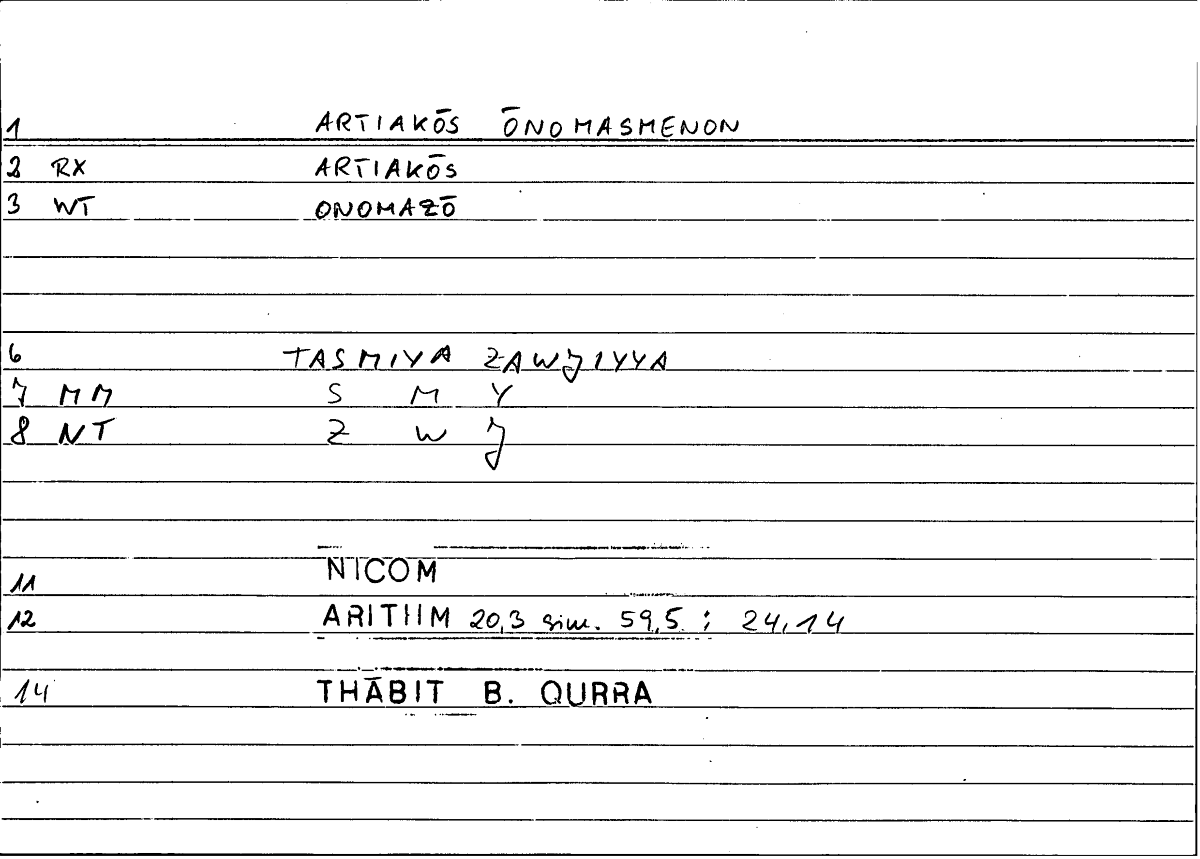 1 ARTIAKŌS ŌNOMASMENON
2 RX ARTIAKŌS
3 WT ONOMAZŌ
6 TASMIYA ZAWJIYYA
7 MM S M Y
8 NT Z W J
11 NICOM
12 ARITIIM 20,3 sim. 59,5 ; 24,14
14 THĀBIT B. QURRA